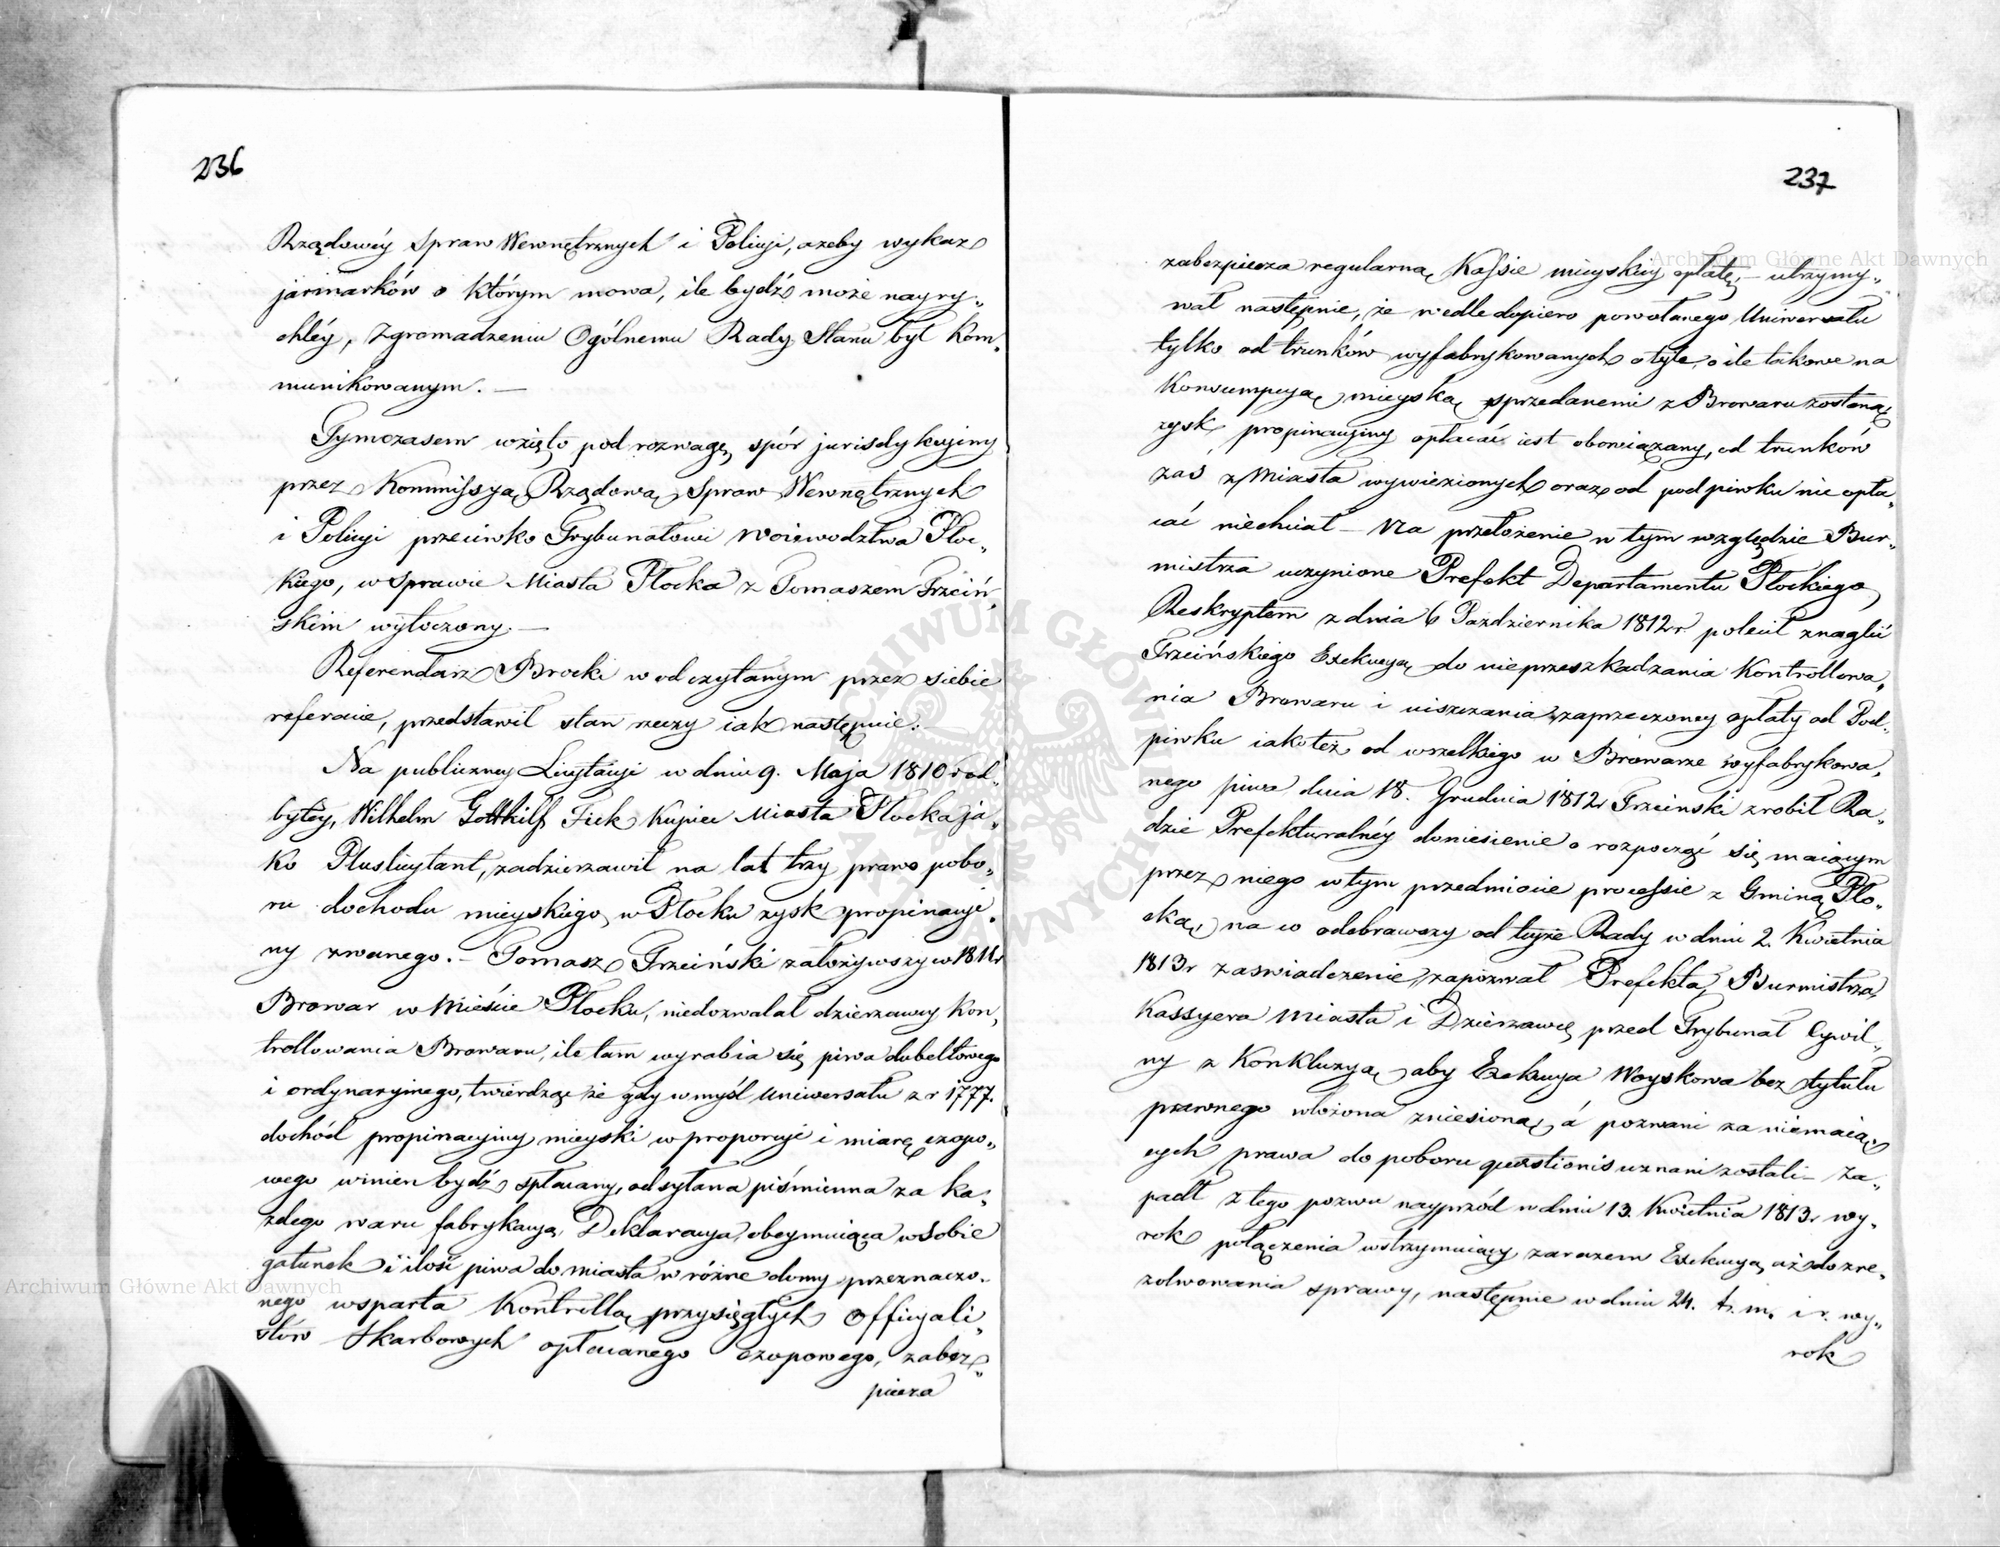 236
Rządowéy Spraw Wewnętrznych i Policyi, ażeby wykaz
jarmarków o którym mowa, ile bydź może nayry„
chléy, Zgromadzeniu Ogólnemu Rady Stanu był kom„
munikowanym. —
Tymczasem wzięto pod rozwagę, spór jurisdykcyiny
przez Kommissyą Rządową Spraw Wewnętrznych
i Policyi przeciwko Trybunałowi Woiewodztwa Płoc„
kiego, w Sprawie Miasta Płocka z Tomaszem Trzciń„
skim wytoczony. —
Referendarz Brocki w odczytanym przez siebie
referacie, przedstawił stan rzeczy iak następuie: —
Na publiczney Licytacyi w dniu 9. Maja 1810 r od„
bytéy, Wilhelm Gotthilf Fick Kupiec Miasta Płocka ja„
ko Pluslicytant, zadzierzawił na lat trzy prawo pobo„
ru dochodu mieyskiego w Płocku zysk propinacyi„
ny zwanego. — Tomasz Trzciński założywszy w 1811 r
Browar w Mieście Płocku, niedozwalał dzierzawcy kon„
trollowania Browaru, ile tam wyrabia się piwa dubeltowego
i ordynaryinego, twierdząc że gdy w myśl Uniwersału z r 1777.
dochód propinacyiny mieyski w proporcyi i miarę czopo„
wego winien bydź spłacany, odsyłana piśmienna za ka„
żdego waru fabrykacyą Deklaracya, obeymuiąca w sobie
gatunek i ilość piwa do miasta w różne domy przeznaczo„
nego wsparta Kontrollą przysięgłych Officyali„
stów Skarbowych opłacanego czopowego, zabez„
piecza
237
zabezpiecza regularną Kassie mieyskiey opłatę, — utrzymy„
wał następnie, że wedle dopiero powołanego Uniwersału
tylko od trunków wyfabrykowanych o tyle, o ile takowe na
Konsumpcyą mieyską sprzedanemi z Browaru zostaną
zysk propinacyiny opłacać iest obowiązany, od trunków
zaś z Miasta wywiezionych oraz od podpiwku nie opła„
cać niechciał — Na przełożenie w tym względzie Bur„
mistrza uczynione Prefekt Departamentu Płockiego
Reskryptem z dnia 6 Października 1812 r. polecił znaglić
Trzcińskiego Exekucyą do nieprzeszkadzania Kontrollowa„
nia Browaru i uiszczania zaprzeczoney opłaty od Pod„
piwku iakoteż od wszelkiego w Browarze wyfabrykowa„
nego piwa dnia 18. Grudnia 1812 r Trzcinski zrobił Ra„
dzie Prefekturalnéy doniesienie o rozpocząć się maiącym
przez niego w tym przedmiocie processie z Gminą Pło„
cką, na co odebrawszy od teyże Rady w dniu 2. Kwietnia
1813 r zaswiadczenie, zapozwał Prefekta, Burmistrza,
Kassyera Miasta i Dzierzawcę przed Trybunał Cywil„
ny z Konkluzyą aby Exekucya Woyskowa bez tytułu
prawnego włożona zniesioną, á pozwani za niemaią„
cych prawa do poboru quaestionis uznani zostali — Za„
padł z tego pozwu nayprzód w dniu 13. Kwietnia 1813 r. wy„
rok połączenia wstrzymuiący zarazem Exekucyą aż do zre„
zolwowania sprawy, następnie w dniu 24. t. m. i r. wy„
rok
Archiwum Główne Akt Dawnych
Archiwum Główne Akt Dawnych
ARCHIWUM GŁÓWNE AKT DAWNYCH